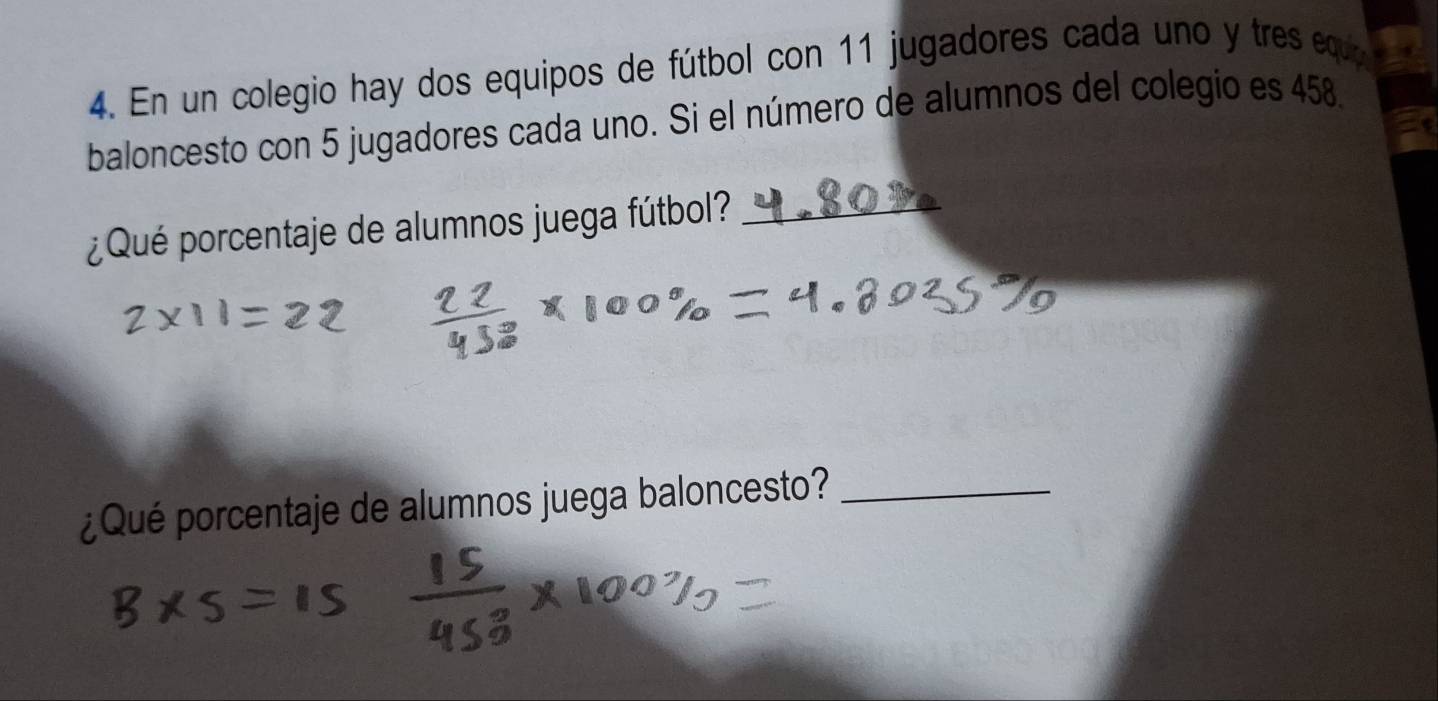 4. En un colegio hay dos equipos de fútbol con 11 jugadores cada uno y tres
baloncesto con 5 jugadores cada uno. Si el número de alumnos del colegio es 458.
¿Qué porcentaje de alumnos juega fútbol? 4.80%
2x11=22 22/458 x 100% = 4.8035%
¿Qué porcentaje de alumnos juega baloncesto? ________
3x5=15 15/458 x 100% =